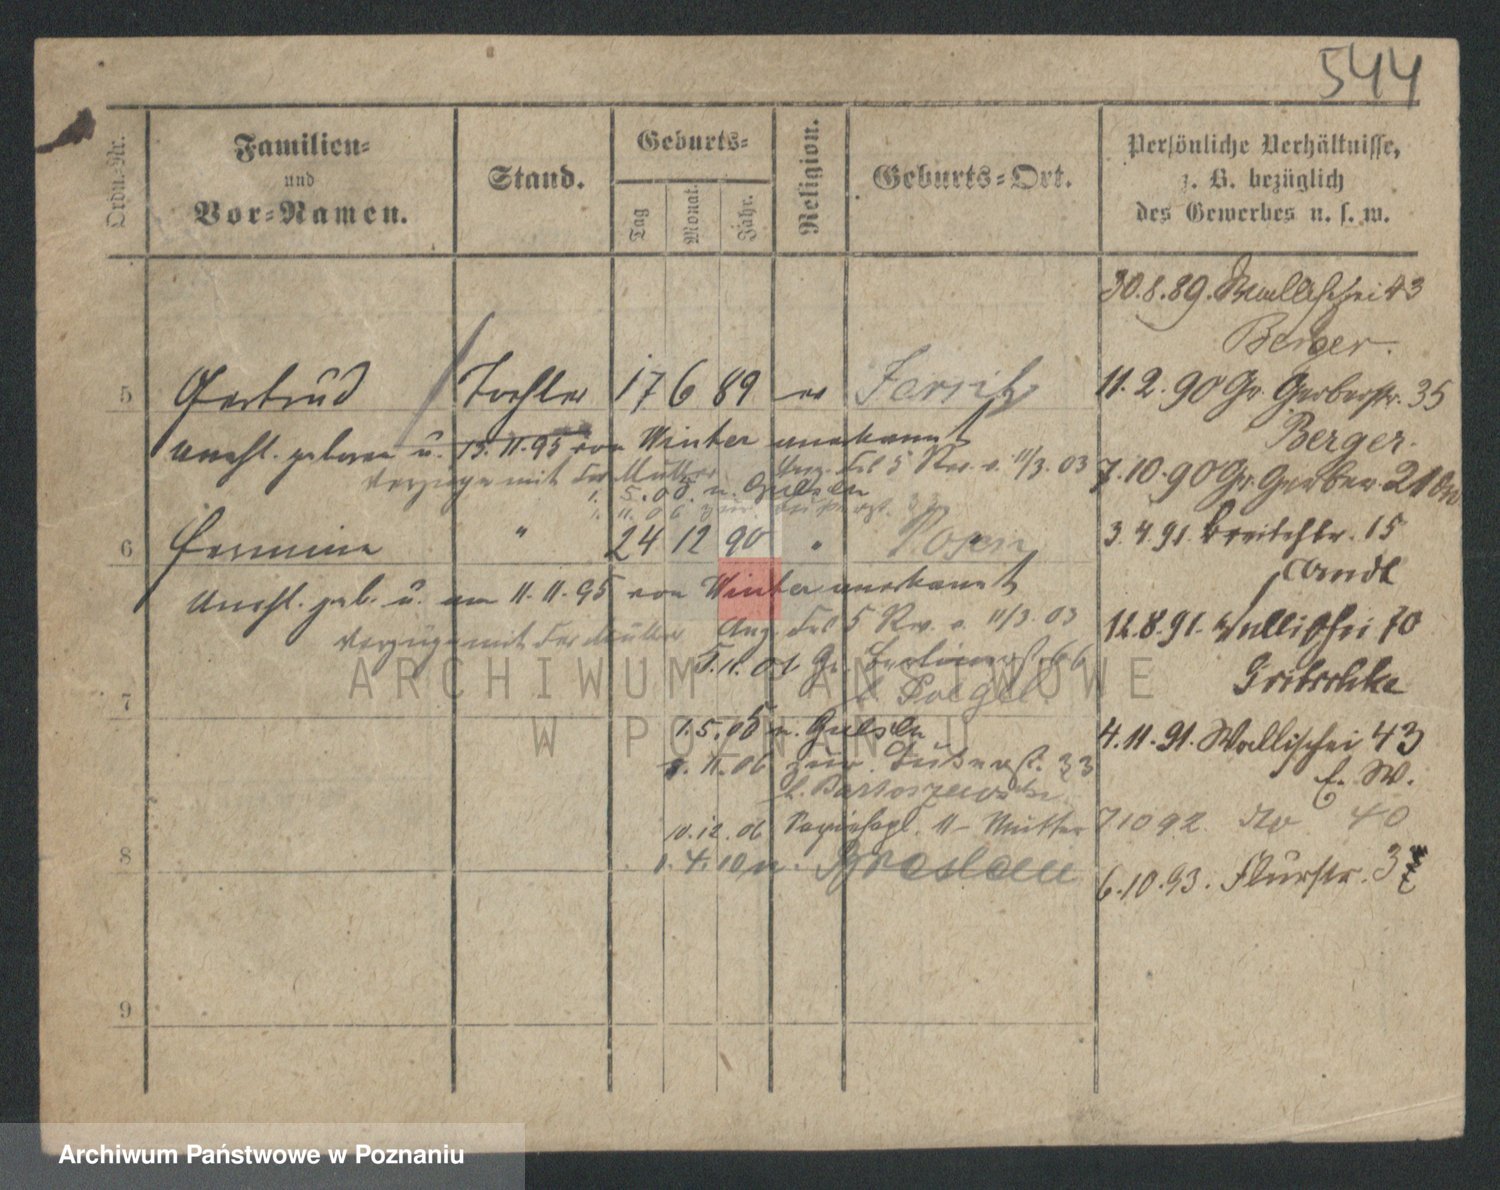 544
Ordn.-Nr.
Familien-
und
Vor-Namen.
Stand.
Geburts-
Tag
Monat.
Jahr.
Religion.
Geburts-Ort.
Persönliche Verhältnisse,
z. B. bezüglich
des Gewerbes u. s. w.
30.8.89. Wallischei 43
Berger.
5 Gertrud Tochter 17 6 89 ev Jersitz
11.2.90 Gr. Gerberstr. 35
Berger.
unehl. geboren u. 15.11.95 von Winter anerkannt
verzogen mit der Mutter
11/3.03
7.10.90 Gr. Gerber 21
1.5.05 n.
1.11.06 zur.
6 Hermine " 24 12 90 " Posen
3.4.91. Breitestr. 15
Arndt
Unehl. geb. u. am 11.11.95 von Winter anerkannt
5 Rev. v. 11/3.03
12.8.91. Wallischei 70
verzogen mit der Mutter
Gr. Berlinerst. 66
Gritschke
7
1.5.05 n.
4.11.91. Wallischei 43
E. W.
1.11.06 zur. 33
b. Bartoszewski
10.12.06 11 - Mutter
7 10 92. do 40
8
1.4.10 n. Breslau
6.10.93. Flurstr. 3
9
ARCHIWUM PAŃSTWOWE
W POZNANIU
Archiwum Państwowe w Poznaniu